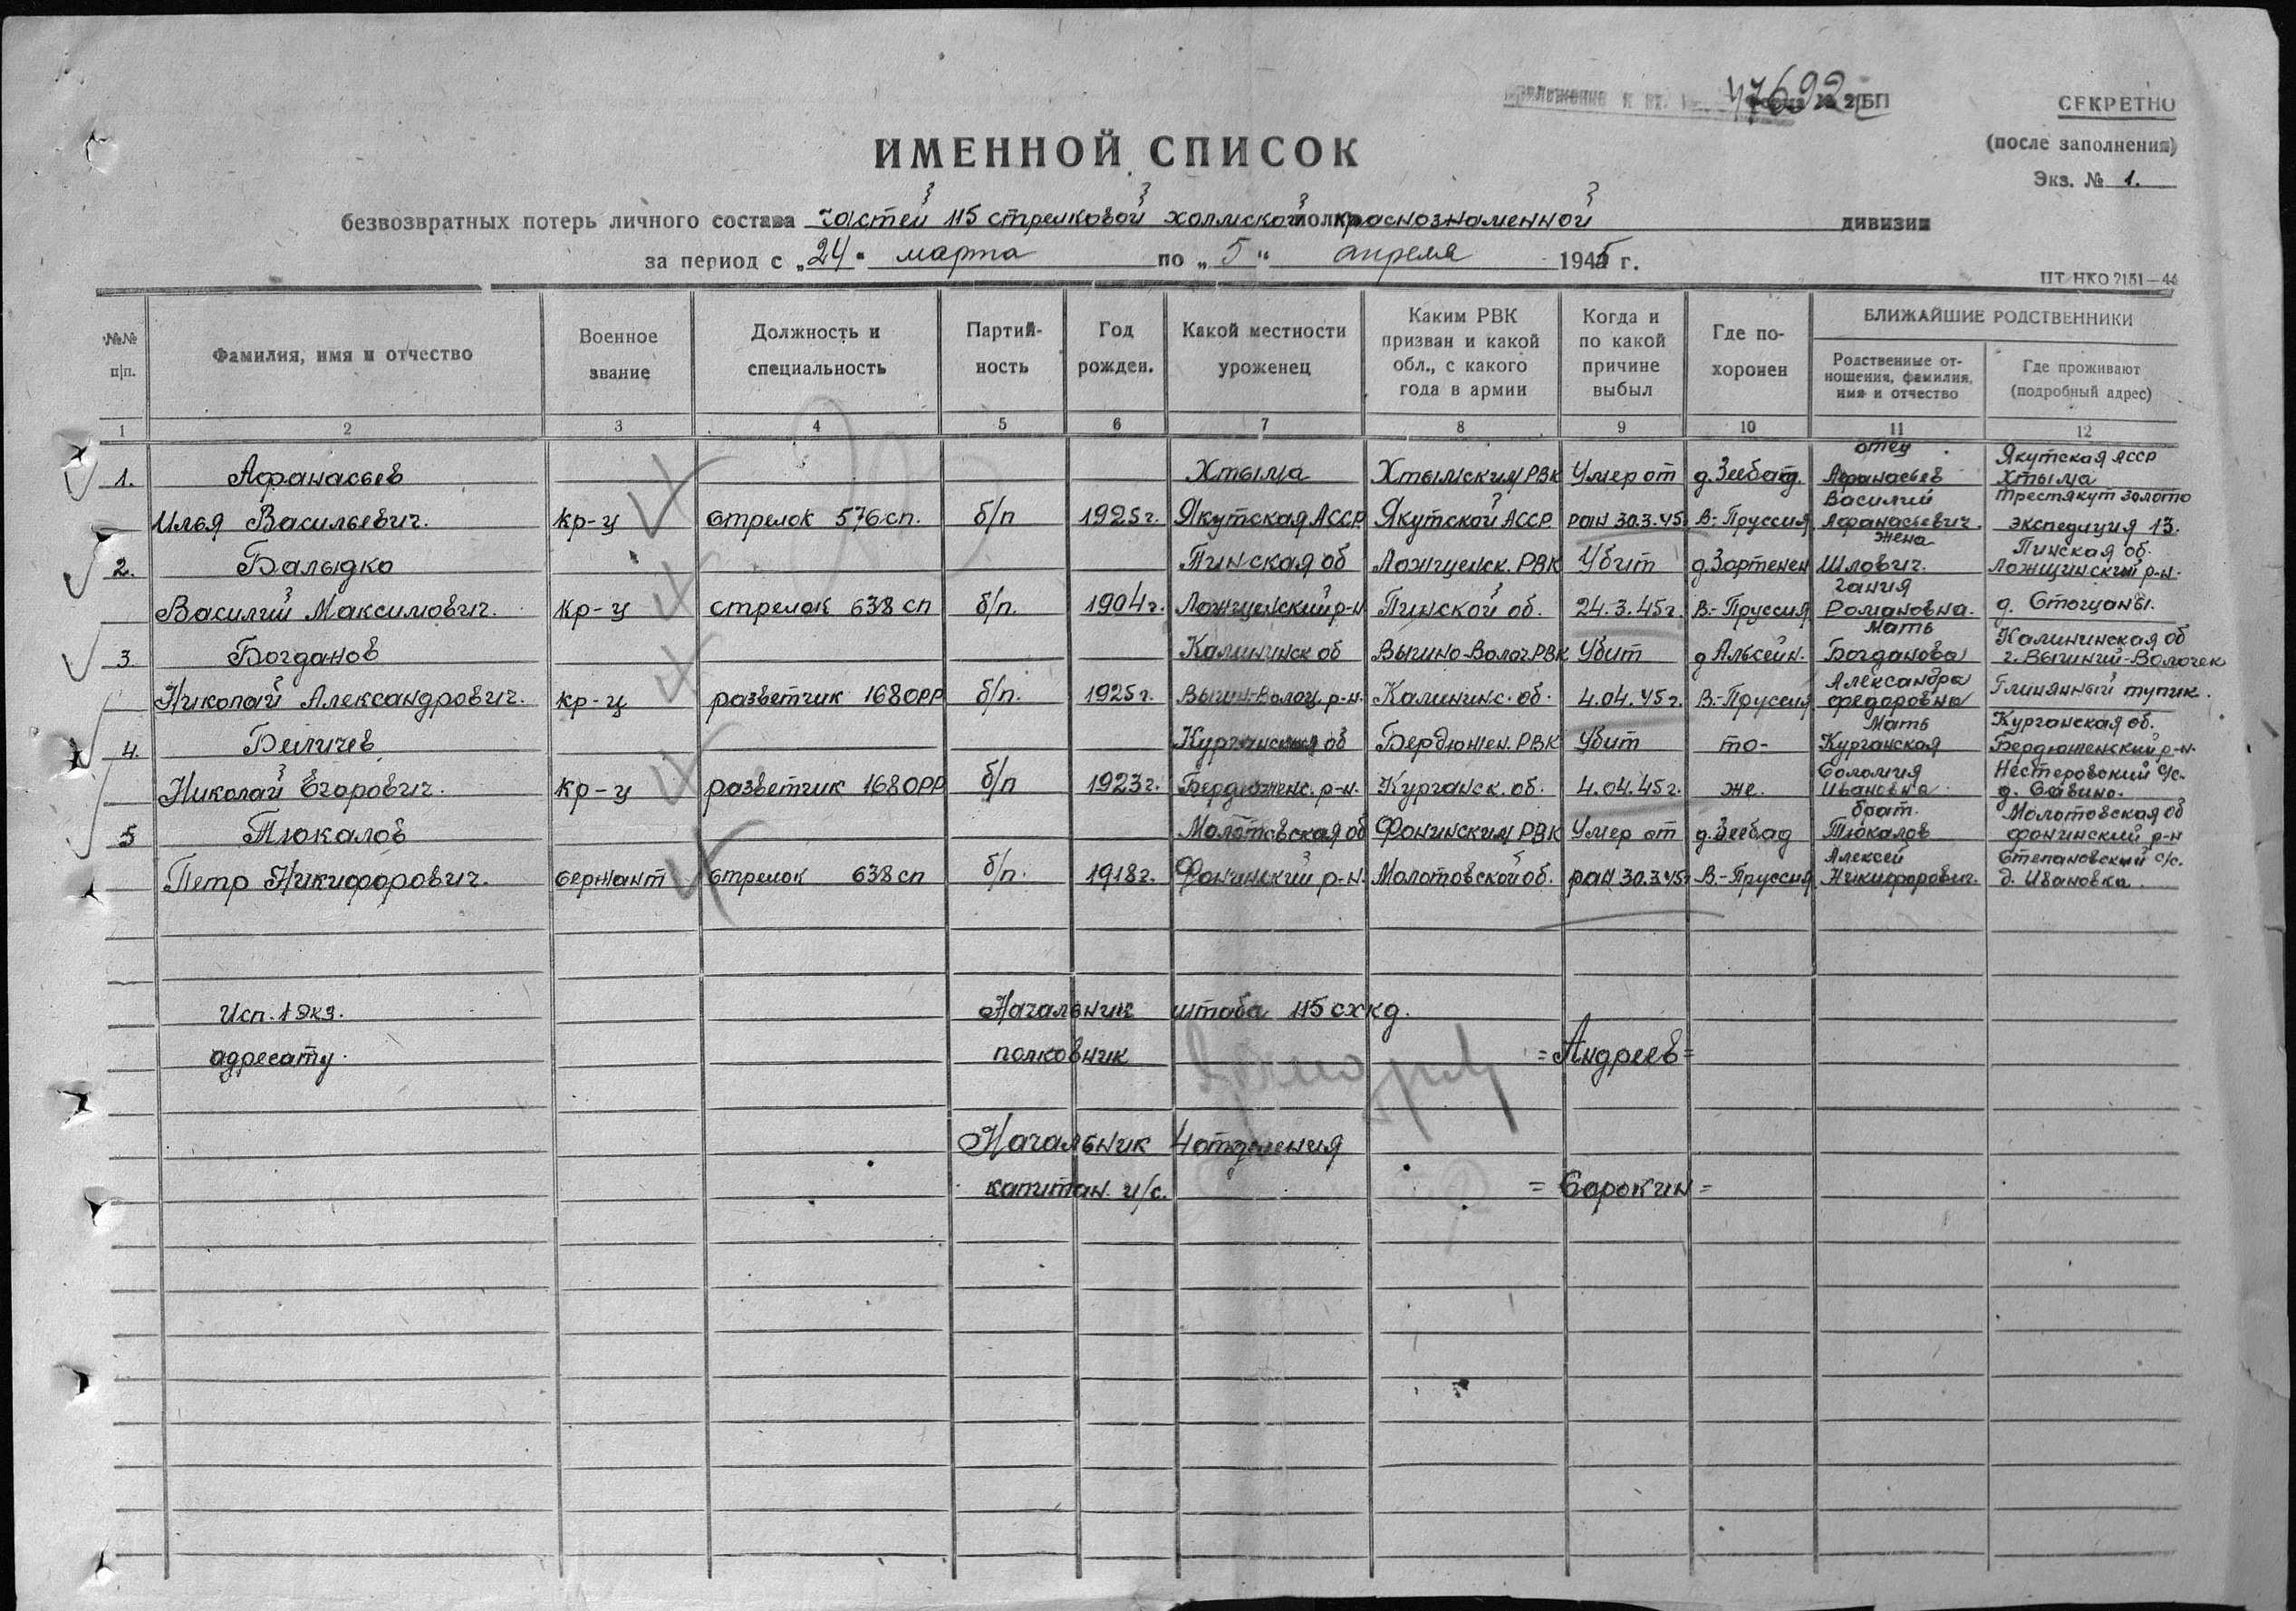 47692
Форма № 2/БП
СЕКРЕТНО
(после заполнения)
Экз. № 1.
ИМЕННОЙ СПИСОК
безвозвратных потерь личного состава частей 115 стрелковой холмской краснознаменной дивизии
за период с „24" марта по „5" апреля 1945 г.
ЦТ НКО 7151—44
№№ п|п.
Фамилия, имя и отчество
Военное звание
Должность и специальность
Партийность
Год рожден.
Какой местности уроженец
Каким РВК призван и какой обл., с какого года в армии
Когда и по какой причине выбыл
Где похоронен
БЛИЖАЙШИЕ РОДСТВЕННИКИ
Родственные отношения, фамилия, имя и отчество
Где проживают (подробный адрес)
1 2 3 4 5 6 7 8 9 10 11 12
отец Якутская АССР
1. Афанасьев Хтыма Хтымским РВК Умер от д. Зеебад. Афанасьев Хтыма
Василий трест якут золото
Илья Васильевич. кр-ц стрелок 576 сп. б/п 1925г. Якутская АССР Якутской АССР ран 30.3.45 В-Пруссия Афанасьевич. экспедиция 13.
жена Пинская об.
2. Балыдко Пинская об Ложщенск. РВК Убит д. Зортенен Шлович. Ложщинский р-н.
гания
Василий Максимович. кр-ц стрелок 638 сп б/п. 1904г. Ложщенский р-н Пинской об. 24.3.45г. В-Пруссия Романовна. д. Стощаны.
Мать Калининская об
3. Богданов Калининск об Вышно-Волоч РВК Убит д Альсейн. Богданова г. Вышний-Волочек
Александра
Николай Александрович. кр-ц разветчик 168 ОРР б/п. 1925г. Вышн-Волоч. р-н. Калининс. об. 4.04.45г. В-Пруссия Федоровна Глинянный тупик.
Мать Курганская об.
4. Беличев Курганская об Бердюжен. РВК Убит то- Курганская Бердюженский р-н.
Соломия Нестеровский с/с.
Николай Егорович. кр-ц разветчик 168 ОРР б/п 1923г. Бердюженс. р-н. Курганск. об. 4.04.45г. же. Ивановна д. Савино.
брат. Молотовская об
5 Тюкалов Молотовская об Фокинским РВК Умер от д. Зеебад Тюкалов фокинский р-н
Алексей Степановский с/с.
Петр Никифорович. сержант стрелок 638 сп б/п. 1918г. Фокинский р-н. Молотовской об. ран 30.3.45г В-Пруссия Никифорович. д. Ивановка.
Исп. 1 экз. Начальник штаба 115 схкд.
адресату. полковник =Андреев=
Начальник 4 отделения
капитан и/с. =Сорокин=